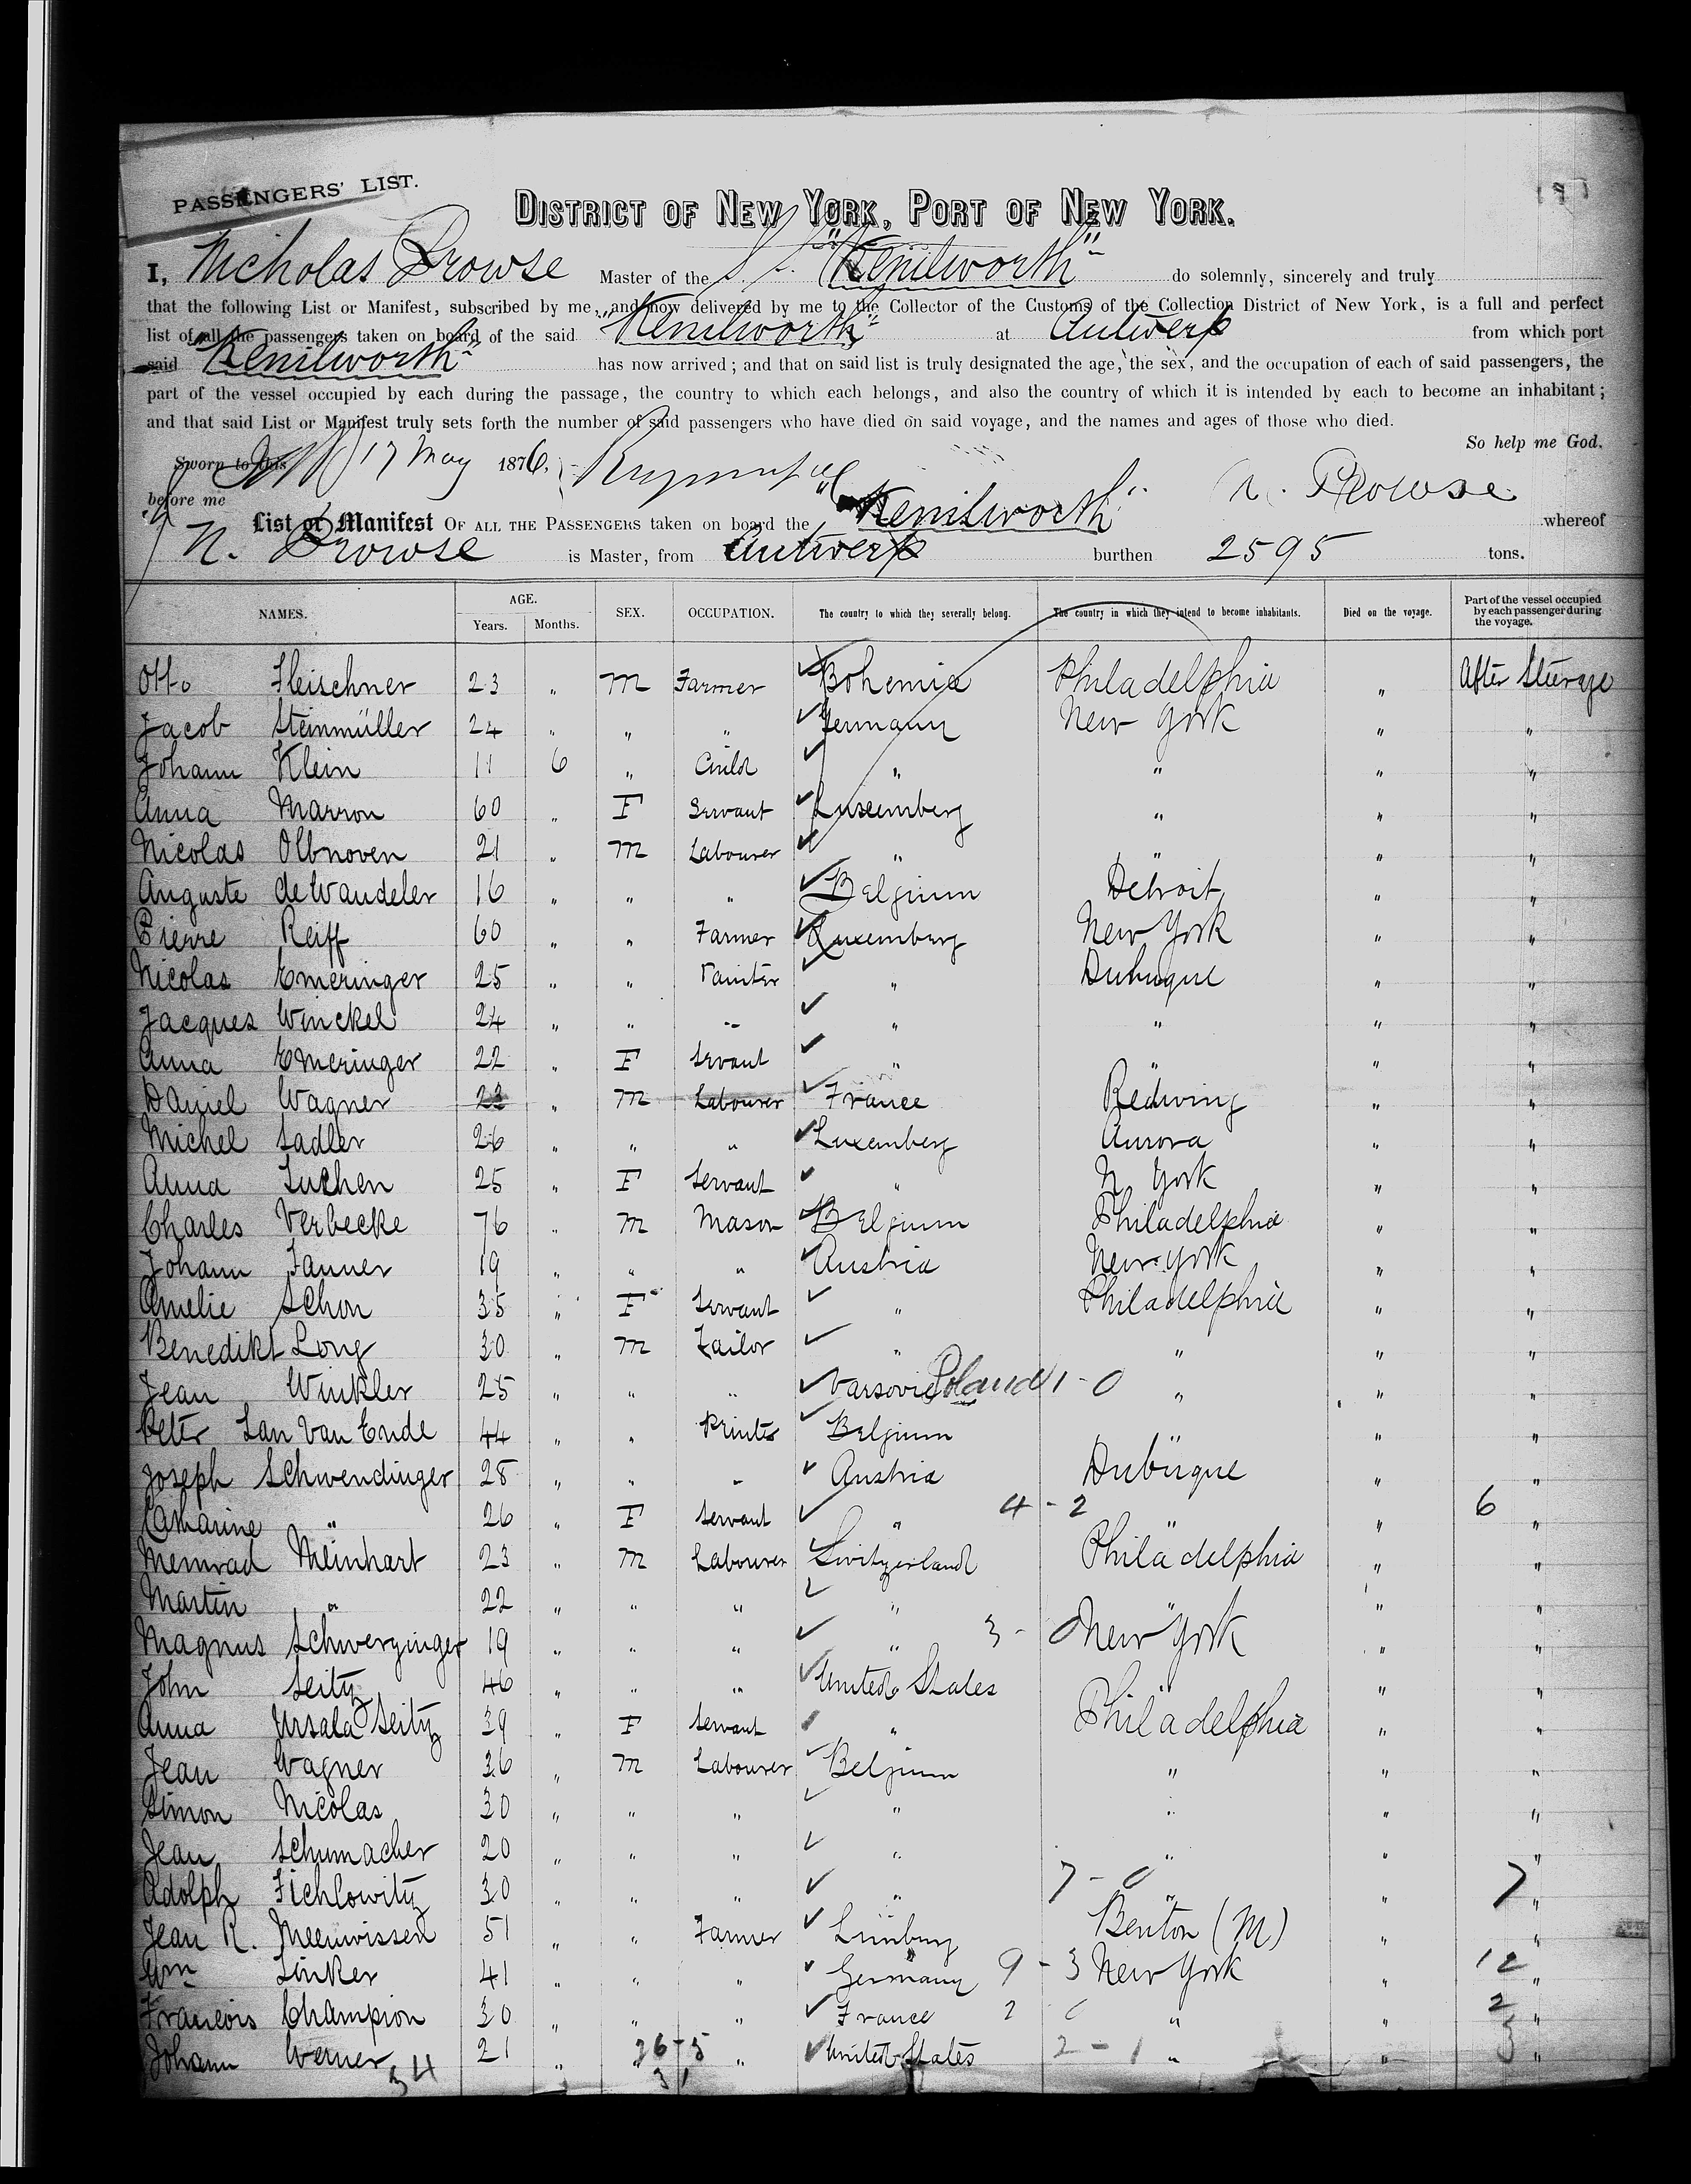 PASSENGERS' LIST.
DISTRICT OF NEW YORK, PORT OF NEW YORK.
I, Nicholas Prowse Master of the S.S. "Kenilworth" do solemnly, sincerely and truly
that the following List or Manifest, subscribed by me, and now delivered by me to the Collector of the Customs of the Collection District of New York, is a full and perfect
list of all the passengers taken on board of the said "Kenilworth" at Antwerp from which port
said "Kenilworth" has now arrived; and that on said list is truly designated the age, the sex, and the occupation of each of said passengers, the
part of the vessel occupied by each during the passage, the country to which each belongs, and also the country of which it is intended by each to become an inhabitant;
and that said List or Manifest truly sets forth the number of said passengers who have died on said voyage, and the names and ages of those who died.
So help me God.
Sworn to this 17 May 1876,
before me N. Prowse
List or Manifest OF ALL THE PASSENGERS taken on board the "Kenilworth" whereof
N. Prowse is Master, from Antwerp burthen 2595 tons.
NAMES. AGE. Years. Months. SEX. OCCUPATION. The country to which they severally belong. The country in which they intend to become inhabitants. Died on the voyage. Part of the vessel occupied by each passenger during the voyage.
Otto Fleischner 23 " M Farmer Bohemia Philadelphia " After Steerage
Jacob Steinmüller 24 " " " Germany New York " "
Johann Klein 11 6 " Child " " " "
Anna Marron 60 " F Servant Luxemberg " " "
Nicolas Olbnoven 21 " M Labourer " " " "
Auguste de Wandeler 16 " " " Belgium Detroit " "
Pierre Reiff 60 " " Farmer Luxemberg New York " "
Nicolas Emeringer 25 " " Painter " Dubuque " "
Jacques Winckel 24 " " " " " " "
Anna Emeringer 22 " F Servant " " " "
Daniel Wagner 23 " M Labourer France Redwing " "
Michel Sadler 26 " " " Luxemberg Aurora " "
Anna Tuchen 25 " F Servant " N York " "
Charles Verbecke 76 " M Mason Belgium Philadelphia " "
Johann Fanner 19 " " " Austria New York " "
Amelie Schon 35 " F Servant " Philadelphia " "
Benedikt Long 30 " M Tailor " " " "
Jean Winkler 25 " " " Varsovie Poland 1 - 0 " " "
Peter Jan Van Ende 44 " " Printer Belgium " " "
Joseph Schwendinger 28 " " " Austria Dubuque " "
Catharine " 26 " F Servant " 4 - 2 " " 6 "
Meinrad Meinhart 23 " M Labourer Switzerland Philadelphia " "
Martin " 22 " " " " " " "
Magnus Schwerzinger 19 " " " " 3 - 0 New York " "
John Seitz 46 " " " United States " " "
Anna Ursala Seitz 39 " F Servant " Philadelphia " "
Jean Wagner 36 " M Labourer Belgium " " "
Simon Nicolas 30 " " " " " " "
Jean Schumacher 20 " " " " " " "
Adolph Fichlowitz 30 " " " " 7 - 0 " " 7 "
Jean R. Meenwissen 51 " " Farmer Limburg Benton (M) " "
Wm Linker 41 " " " Germany 9 - 3 New York " 12 "
Francois Champion 30 " " " France 2 0 " " 2 "
Johann Werner 21 " " United States 2 - 1 " " 3 "
34 26 - 5
31